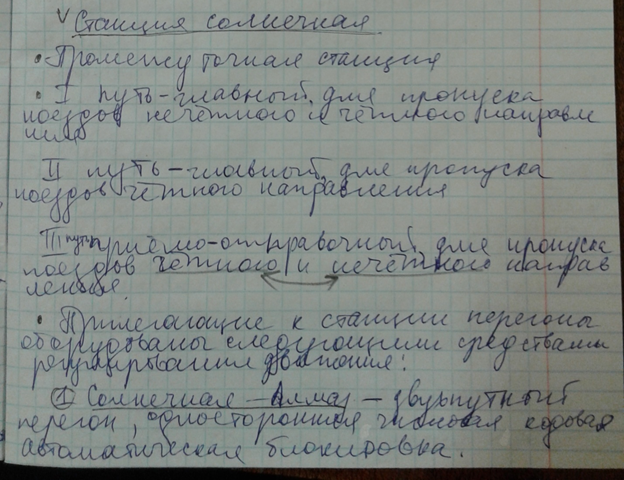 √ Станция солнечная
• Промежуточная станция
• I путь-главный, для пропуска
поездов нечётного и чётного направле
ния
II путь-главный, для пропуска
поездов чётного направления
III путь приёмо-отправочный, для пропуска
поездов чётного и нечётного направ
ления.
• Прилегающие к станции перегоны
оборудованы следующими средствами
регулирования движения:
① Солнечная - Алмаз - двухпутный
перегон, односторонняя числовая кодовая
автоматическая блокировка.